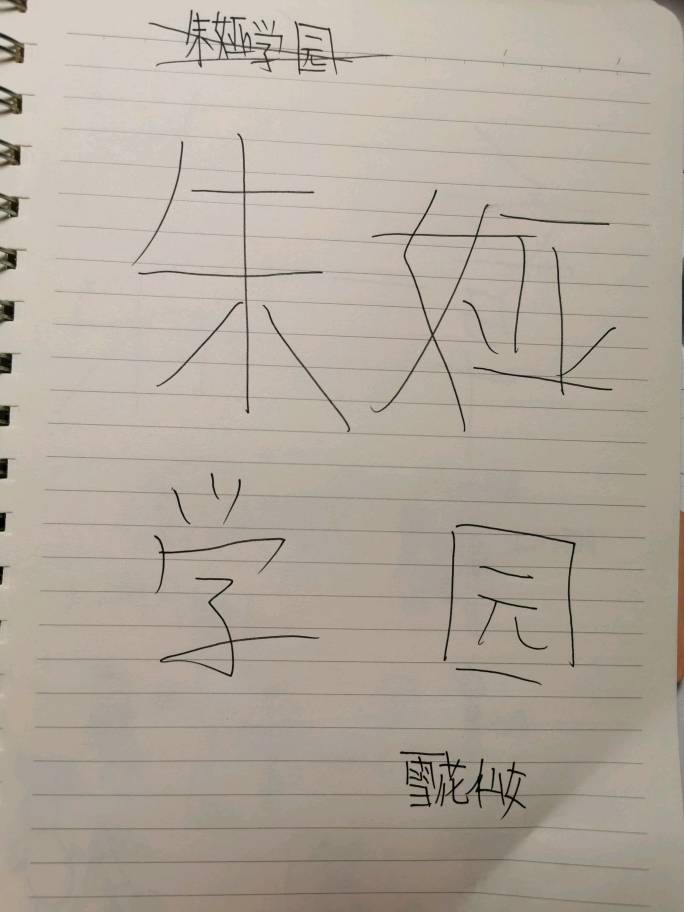 朱娅学园
朱娅
学园
雪花仙女